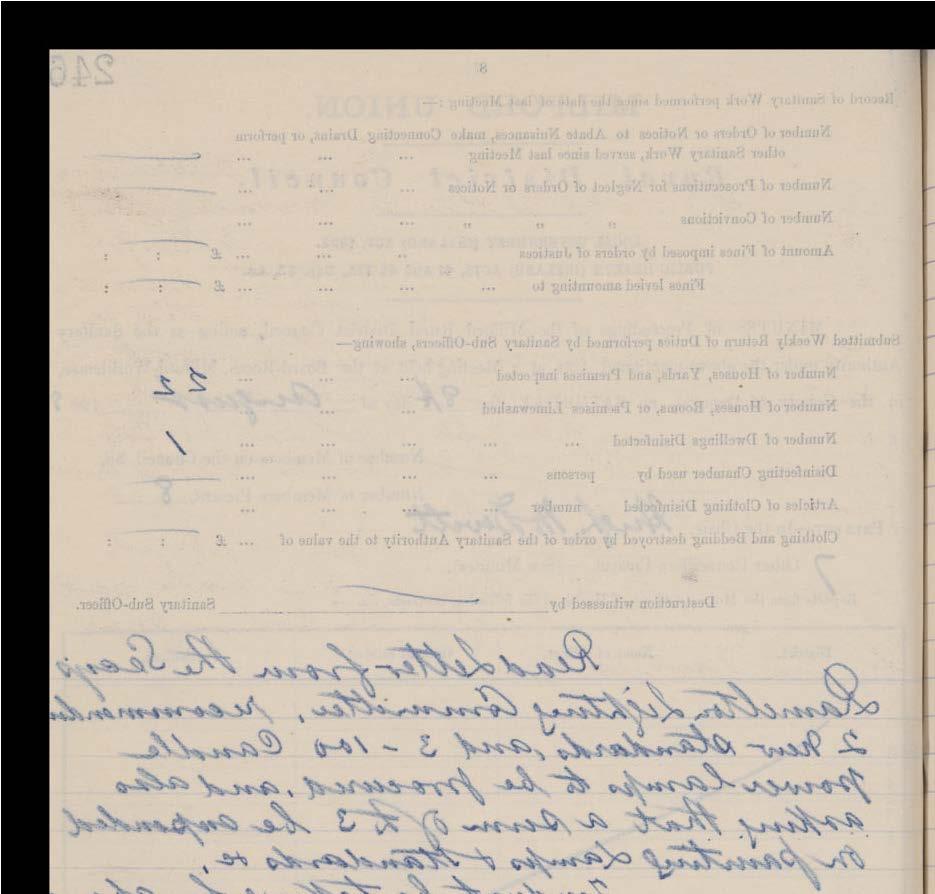 246
8
Record of Sanitary Work performed since the date of last Meeting :—
Number of Orders or Notices to Abate Nuisances, make Connecting Drains, or perform
other Sanitary Work, served since last Meeting ... ... ...
Number of Prosecutions for Neglect of Orders or Notices ... ... ...
Number of Convictions „ „ „ ... ... ...
Amount of Fines imposed by orders of Justices ... ... ... £ : :
Fines levied amounting to ... ... ... ... £ : :
Submitted Weekly Return of Duties performed by Sanitary Sub-Officers, showing—
Number of Houses, Yards, and Premises inspected ... ... ... 22
Number of Houses, Rooms, or Premises Limewashed ... ... ... ...
Number of Dwellings Disinfected ... ... ... ... ... 1
Disinfecting Chamber used by persons ... ... ... ...
Articles of Clothing Disinfected number ... ... ... ...
Clothing and Bedding destroyed by order of the Sanitary Authority to the value of ... £ : :
Destruction witnessed by Sanitary Sub-Officer.
Read Letter from the Secy
Ramelton Lighting Committee, recommending
2 new standards, and 3 - 100 Candle
power lamps to be procured, and also
asking that a sum of £3 be expended
on painting Lamps & Standards &c.